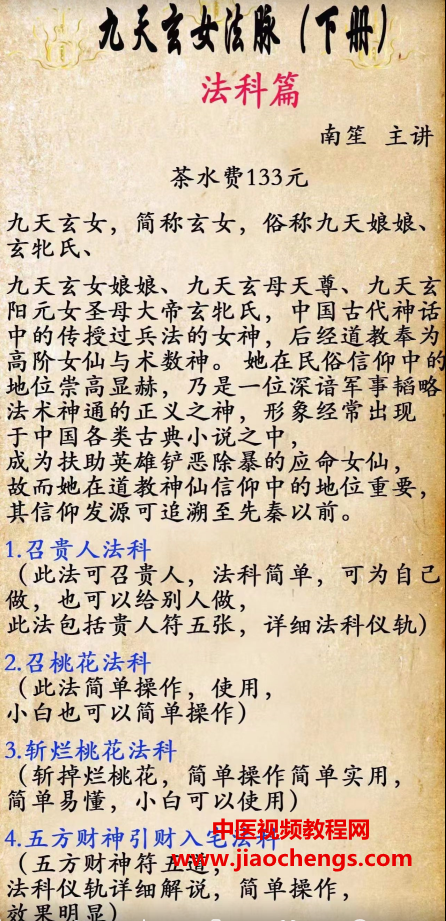 九天玄女法脉（下册）
法科篇
南笙 主讲
茶水费133元
九天玄女，简称玄女，俗称九天娘娘、
玄牝氏、
九天玄女娘娘、九天玄母天尊、九天玄
阳元女圣母大帝玄牝氏，中国古代神话
中的传授过兵法的女神，后经道教奉为
高阶女仙与术数神。她在民俗信仰中的
地位崇高显赫，乃是一位深谙军事韬略，
法术神通的正义之神，形象经常出现
于中国各类古典小说之中，
成为扶助英雄铲恶除暴的应命女仙，
故而她在道教神仙信仰中的地位重要，
其信仰发源可追溯至先秦以前。
1.召贵人法科
（此法可召贵人，法科简单，可为自己
做，也可以给别人做，
此法包括贵人符五张，详细法科仪轨）
2.召桃花法科
（此法简单操作，使用，
小白也可以简单操作）
3.斩烂桃花法科
（斩掉烂桃花，简单操作简单实用，
简单易懂，小白可以使用）
4.五方财神引财入宅法科
中医视频教程网
（五方财神符五道，
www.jiaochengs.com
法科仪轨详细解说，简单操作，
效果明显）